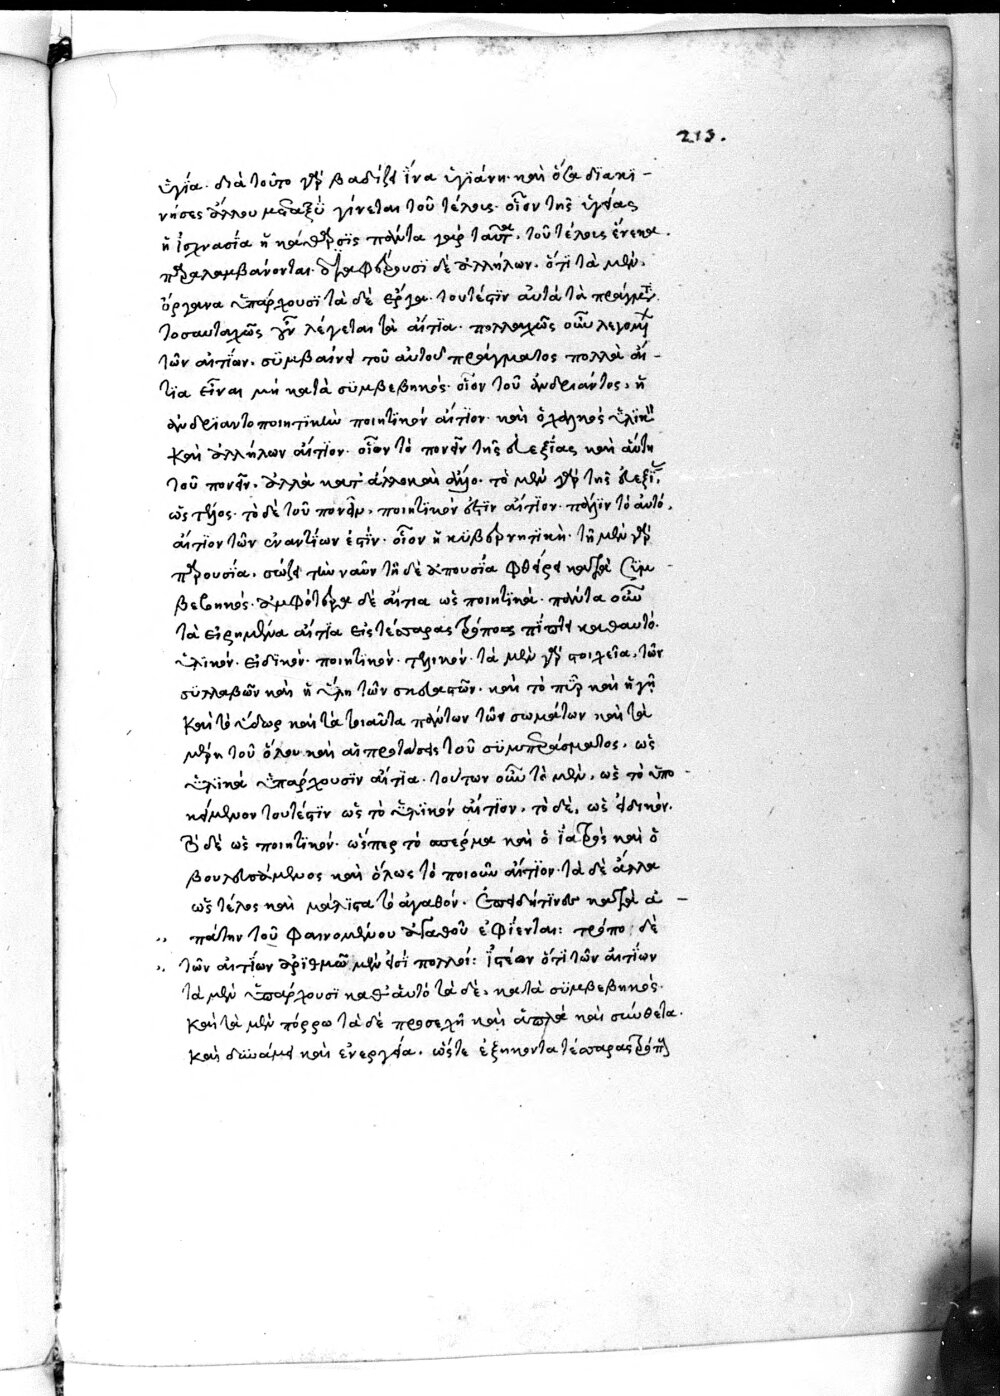 213.
ὑγεία. διὰ τοῦτο γὰρ βαδίζει ἵνα ὑγιάνῃ. καὶ ὅσα δϊακϊ-
νήσεως ἄλλου μεταξὺ γίνεται τοῦ τέλους. οἷον τῆς ὑγείας
ἢ ἰσχνασία ἢ κάθαρσϊς πάντα γὰρ ταῦτα, τοῦ τέλους ἕνεκα.
παραλαμβάνονται. διαφέρουσϊ δὲ ἀλλήλων. ὅτϊ τὰ μὲν,
ὄργανα ὑπάρχουσϊ τὰ δὲ ἔργα. τουτέστϊν αὐτὰ τὰ πράγματα.
τοσαυταχῶς γοῦν λέγεται τὰ αἴτϊα. πολλαχῶς οὖν λεγομένων
τῶν αἰτίων, σϋμβαίνει τοῦ αὐτοῦ πράγματος πολλὰ αἴ-
τϊα εἶναι μὴ κατὰ σϋμβεβηκός. οἷον τοῦ ἀνδριάντος, ἡ
ἀνδρϊαντοποιητϊκὴ ποιητϊκὸν αἴτϊον. καὶ ὁ χαλκὸς ὑλικὸν
καὶ ἀλλήλων αἴτϊον. οἷον τὸ πονεῖν τῆς εὐεξίας καὶ αὕτη
τοῦ πονεῖν. ἀλλὰ κατ' ἄλλο καὶ ἄλλο. τὸ μὲν γὰρ τῆς εὐεξίας,
ὡς τέλος. τὸ δὲ τοῦ πονεῖν, ποιητϊκόν ἐστϊν αἴτϊον. πάλϊν τὸ αὐτό,
αἴτϊον τῶν ἐναντίων ἐστίν. οἷον ἡ κϋβερνητϊκή. τῇ μὲν γὰρ
παρουσία, σώζει τὴν ναῦν τῇ δὲ ἀπουσία φθείρει κατὰ σϋμ-
βεβηκός. ἀμφότερα δὲ αἴτια ὡς ποιητϊκά. πάντα οὖν
τὰ εἰρημένα αἴτϊα εἰς τέσσαρας τρόπους πίπτει καθαυτό.
ὑλικόν. εἰδικόν. ποιητϊκόν. τελικόν. τὰ μὲν γὰρ στοιχεῖα, τῶν
σϋλλαβῶν καὶ ἡ ὕλη τῶν σκευαστῶν. καὶ τὸ πῦρ καὶ ἡ γῆ
καὶ τὸ ὕδωρ καὶ τὰ τοιαῦτα πάντων τῶν σωμάτων καὶ τὰ
μέρη τοῦ ὅλου καὶ αἱ προτάσεις τοῦ σϋμπεράσματος, ὡς
ὑλικὰ ὑπάρχουσϊν αἴτϊα. τούτων οὖν τὰ μὲν, ὡς τὸ ὑπο-
κείμενον τουτέστϊν ὡς τὸ ὑλϊκὸν αἴτϊον, τὸ δὲ, ὡς εἰδικόν.
τὸ δὲ ὡς ποιητϊκόν. ὥσπερ τὸ σπέρμα καὶ ὁ ἰατρὸς καὶ ὁ
βουλευσάμενος καὶ ὅλως τὸ ποιοῦν αἴτϊον. τὰ δὲ ἄλλα
ὡς τέλος καὶ μάλϊστα τὸ ἀγαθόν. κατὰ ἀ-
πάτην τοῦ φαινομένου ἀγαθοῦ ἐφίενται: τρόποι δὲ
τῶν αἰτίων ἀρϊθμῶ μέν εἰσϊ πολλοί: ἰστέον ὅτϊ τῶν αἰτίων
τὰ μὲν ὑπάρχουσϊ καθ' αὑτό τὰ δὲ, κατὰ σϋμβεβηκός.
καὶ τὰ μὲν πόρρω τὰ δὲ προσεχῆ καὶ ἁπλὰ καὶ σύνθετα.
καὶ δυνάμει καὶ ἐνεργεία. ὥστε ἑξήκοντα τέσσαρας τρόπους